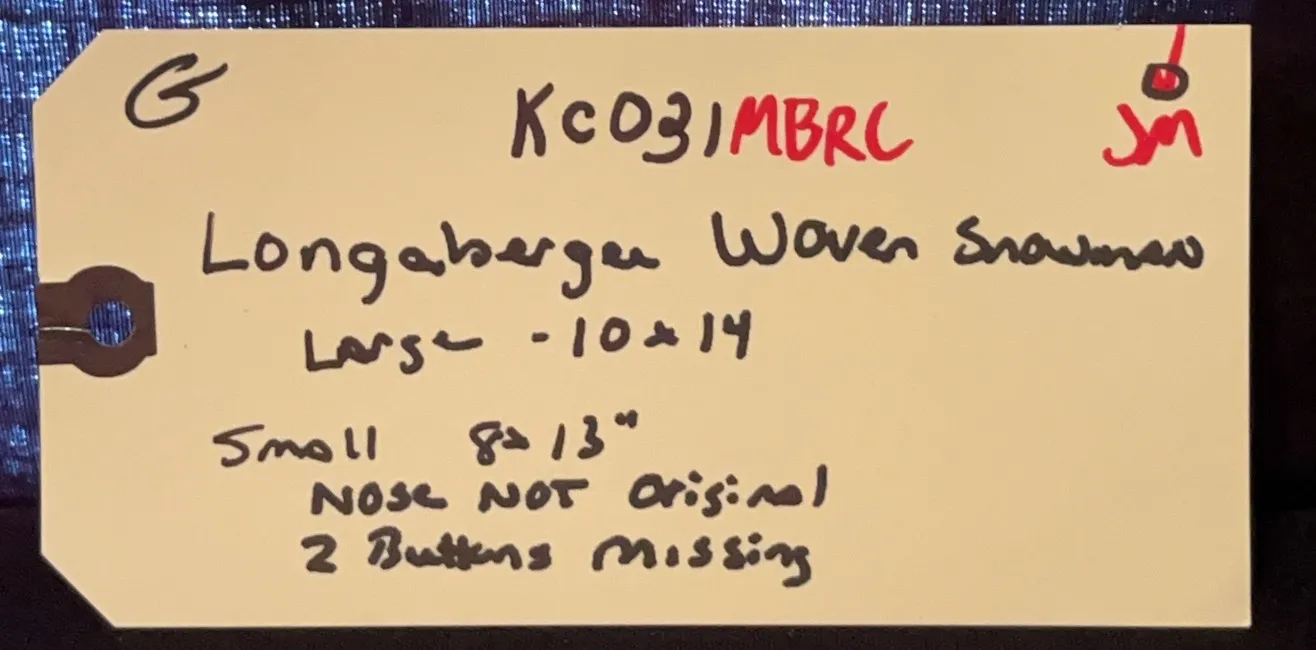 G
KC031MBRC
JM
Longaberger Woven Snowmen
Large - 10 x 14
Small 8 x 13"
Nose NOT Original
2 Buttons Missing